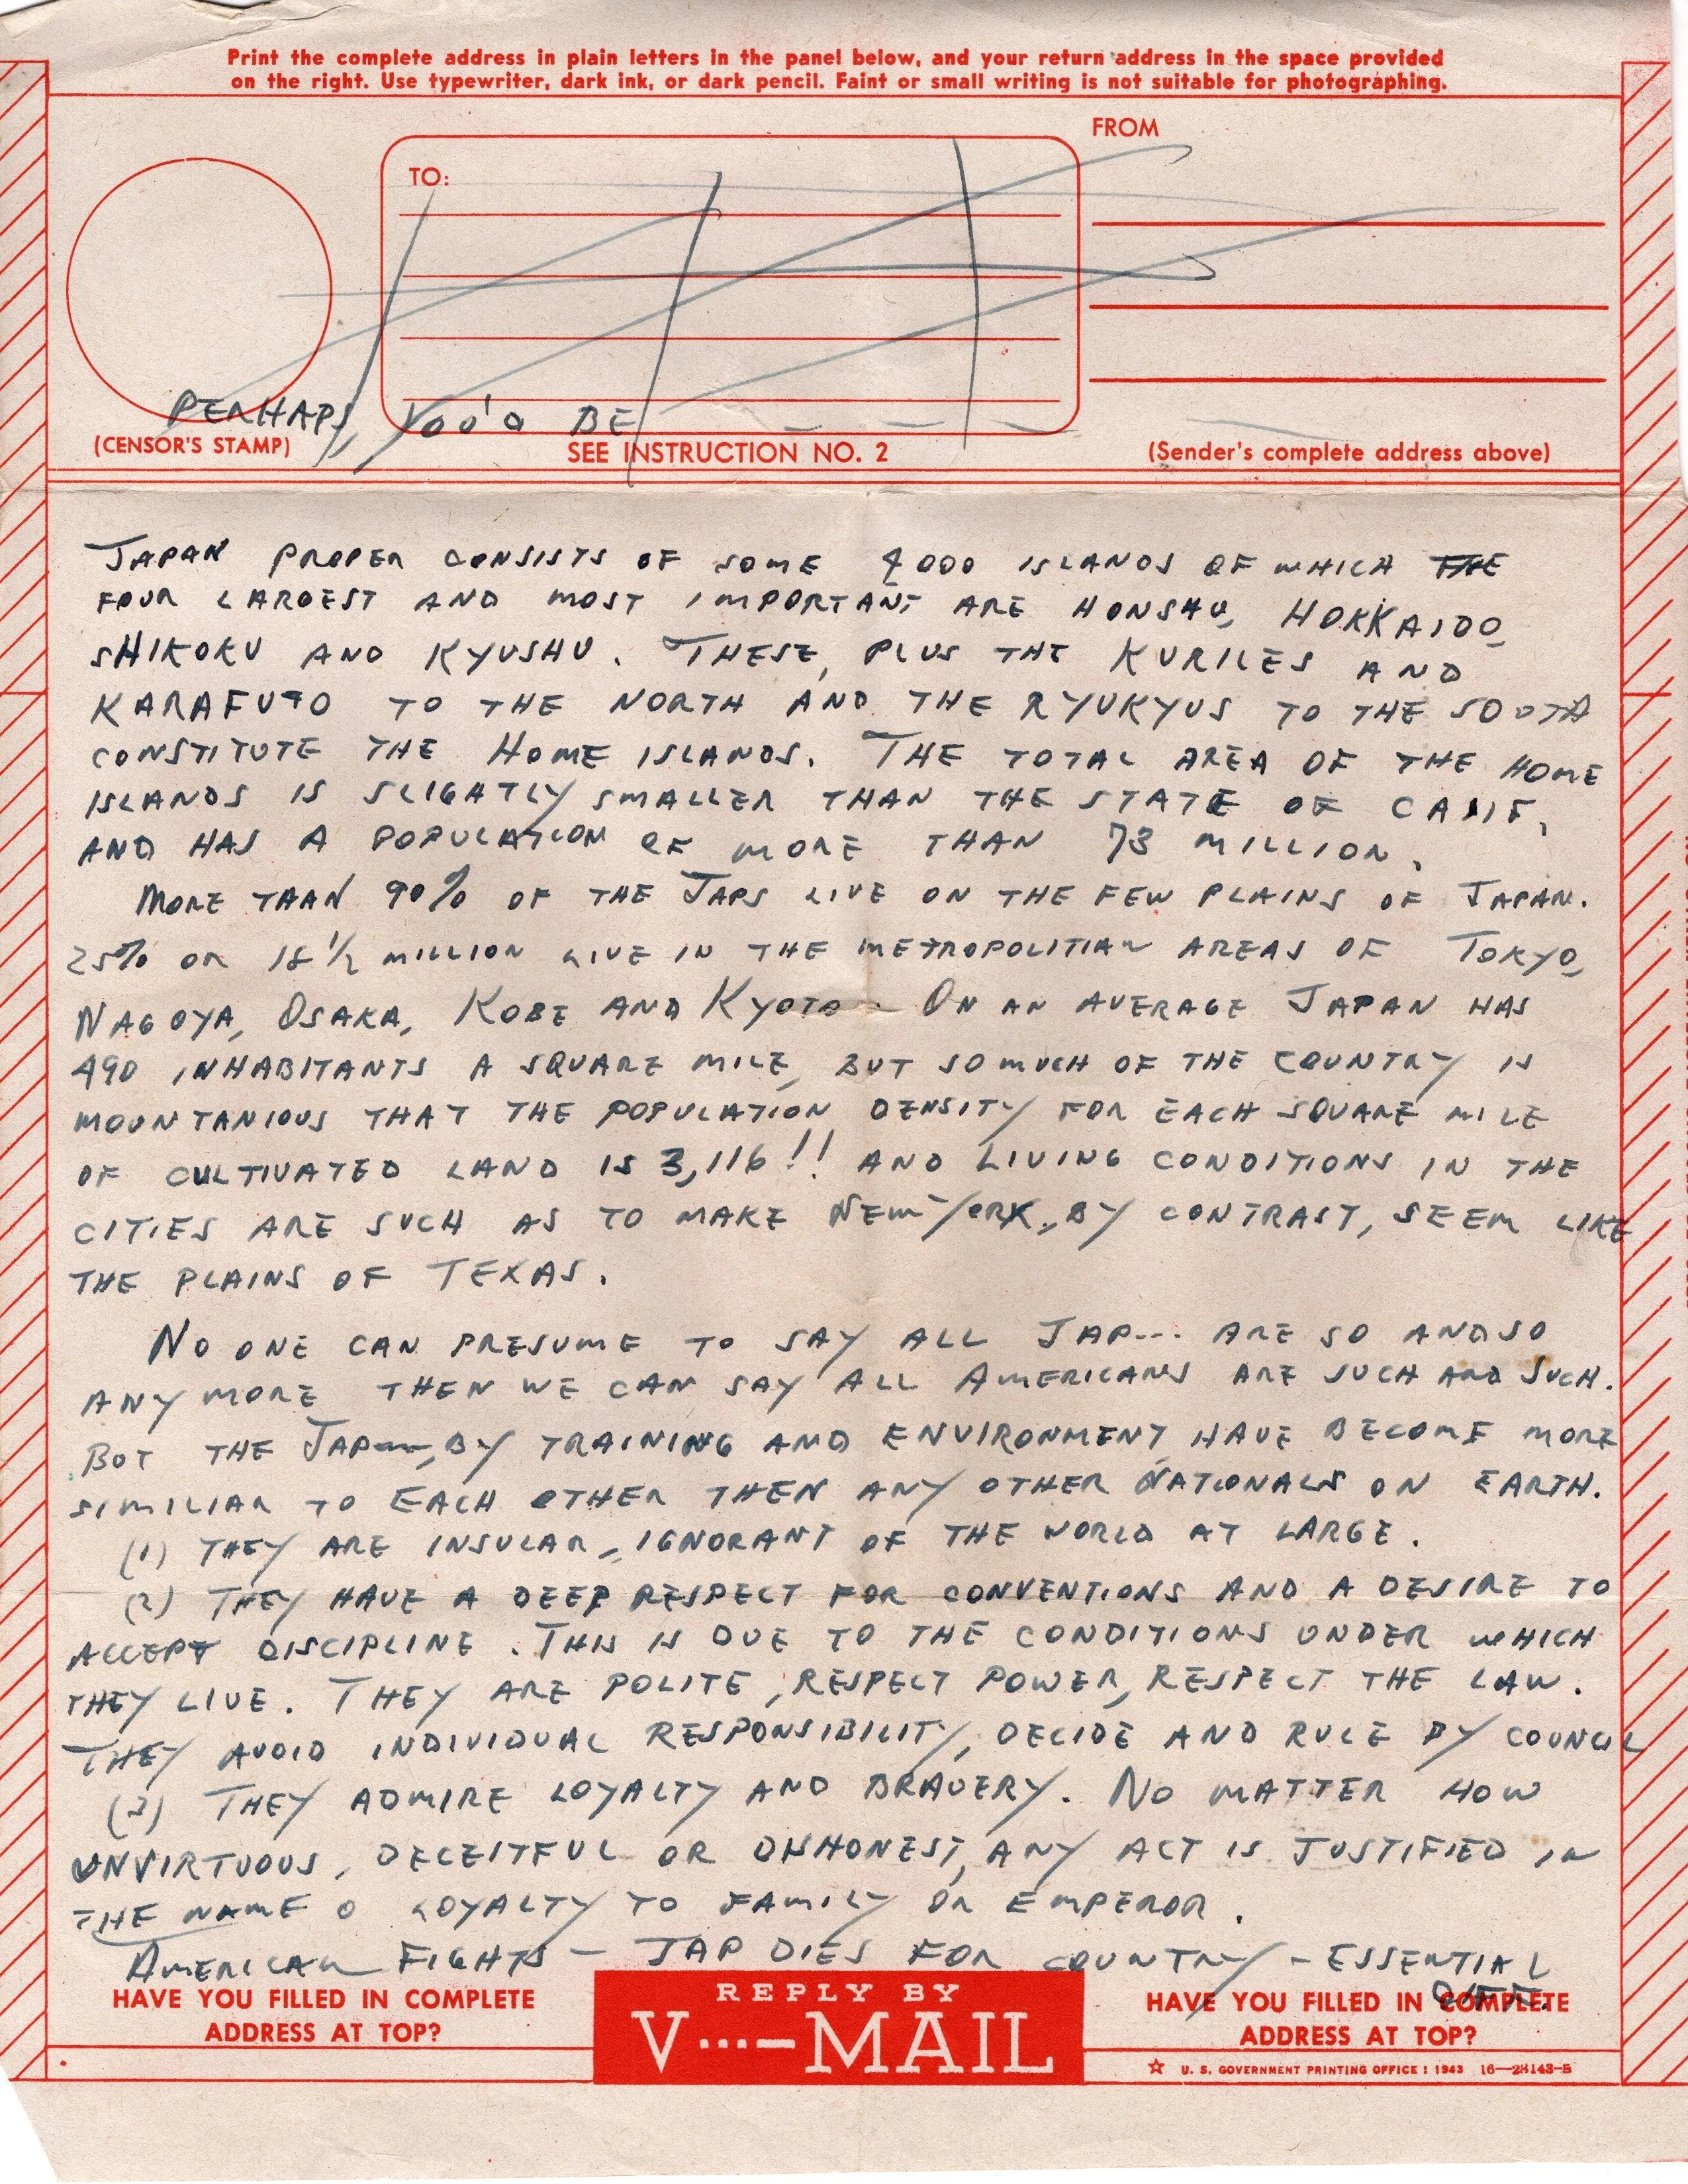 Print the complete address in plain letters in the panel below, and your return address in the space provided
on the right. Use typewriter, dark ink, or dark pencil. Faint or small writing is not suitable for photographing.
FROM
TO:
PERHAPS, YOU'D BE
(CENSOR'S STAMP)
SEE INSTRUCTION NO. 2
(Sender's complete address above)
JAPAN PROPER CONSISTS OF SOME 4000 ISLANDS OF WHICH THE
FOUR LARGEST AND MOST IMPORTANT ARE HONSHU, HOKKAIDO,
SHIKOKU AND KYUSHU. THESE, PLUS THE KURILES AND
KARAFUTO TO THE NORTH AND THE RYUKYUS TO THE SOUTH
CONSTITUTE THE HOME ISLANDS. THE TOTAL AREA OF THE HOME
ISLANDS IS SLIGHTLY SMALLER THAN THE STATE OF CALIF,
AND HAS A POPULATION OF MORE THAN 73 MILLION.
MORE THAN 90% OF THE JAPS LIVE ON THE FEW PLAINS OF JAPAN.
25% OR 18 1/2 MILLION LIVE IN THE METROPOLITIAN AREAS OF TOKYO,
NAGOYA, OSAKA, KOBE AND KYOTO. ON AN AVERAGE JAPAN HAS
490 INHABITANTS A SQUARE MILE, BUT SO MUCH OF THE COUNTRY IS
MOUNTANIOUS THAT THE POPULATION DENSITY FOR EACH SQUARE MILE
OF CULTIVATED LAND IS 3,116!! AND LIVING CONDITIONS IN THE
CITIES ARE SUCH AS TO MAKE NEW YORK, BY CONTRAST, SEEM LIKE
THE PLAINS OF TEXAS.
NO ONE CAN PRESUME TO SAY ALL JAP--- ARE SO AND SO
ANY MORE THEN WE CAN SAY ALL AMERICANS ARE SUCH AND SUCH.
BUT THE JAP---, BY TRAINING AND ENVIRONMENT, HAVE BECOME MORE
SIMILIAR TO EACH OTHER THEN ANY OTHER NATIONALS ON EARTH.
(1) THEY ARE INSULAR, IGNORANT OF THE WORLD AT LARGE.
(2) THEY HAVE A DEEP RESPECT FOR CONVENTIONS AND A DESIRE TO
ACCEPT DISCIPLINE. THIS IS DUE TO THE CONDITIONS UNDER WHICH
THEY LIVE. THEY ARE POLITE, RESPECT POWER, RESPECT THE LAW.
THEY AVOID INDIVIDUAL RESPONSIBILITY, DECIDE AND RULE BY COUNCIL
(3) THEY ADMIRE LOYALTY AND BRAVERY. NO MATTER HOW
UNVIRTUOUS, DECEITFUL OR DISHONEST, ANY ACT IS JUSTIFIED IN
THE NAME O LOYALTY TO FAMILY OR EMPEROR.
AMERICAN FIGHTS - JAP DIES FOR COUNTRY - ESSENTIAL
DIFF.
HAVE YOU FILLED IN COMPLETE
ADDRESS AT TOP?
REPLY BY
V···—MAIL
HAVE YOU FILLED IN COMPLETE
ADDRESS AT TOP?
☆ U. S. GOVERNMENT PRINTING OFFICE : 1943 16—28143-5